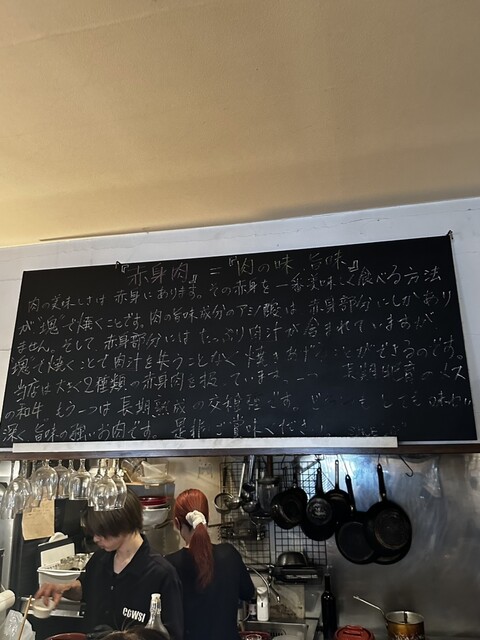 『赤身肉』=『肉の味 旨味』
肉の美味しさは 赤身にあります。その赤身を 一番美味しく食べる方法
が"塊"で焼くことです。肉の旨味成分のアミノ酸は 赤身部分にしかあり
ません。そして 赤身部分には たっぷり肉汁が 含まれていますが
塊"で焼くことで肉汁を失うことなく 焼きあげることができるのです。
当店は大きく2種類の赤身肉を扱っています。一つは 長期肥育のメス
の和牛 もう一つは 長期熟成の交雑種です。どちらにしても 味わい
深く 旨味の強いお肉です。是非 ご賞味ください
COWSI